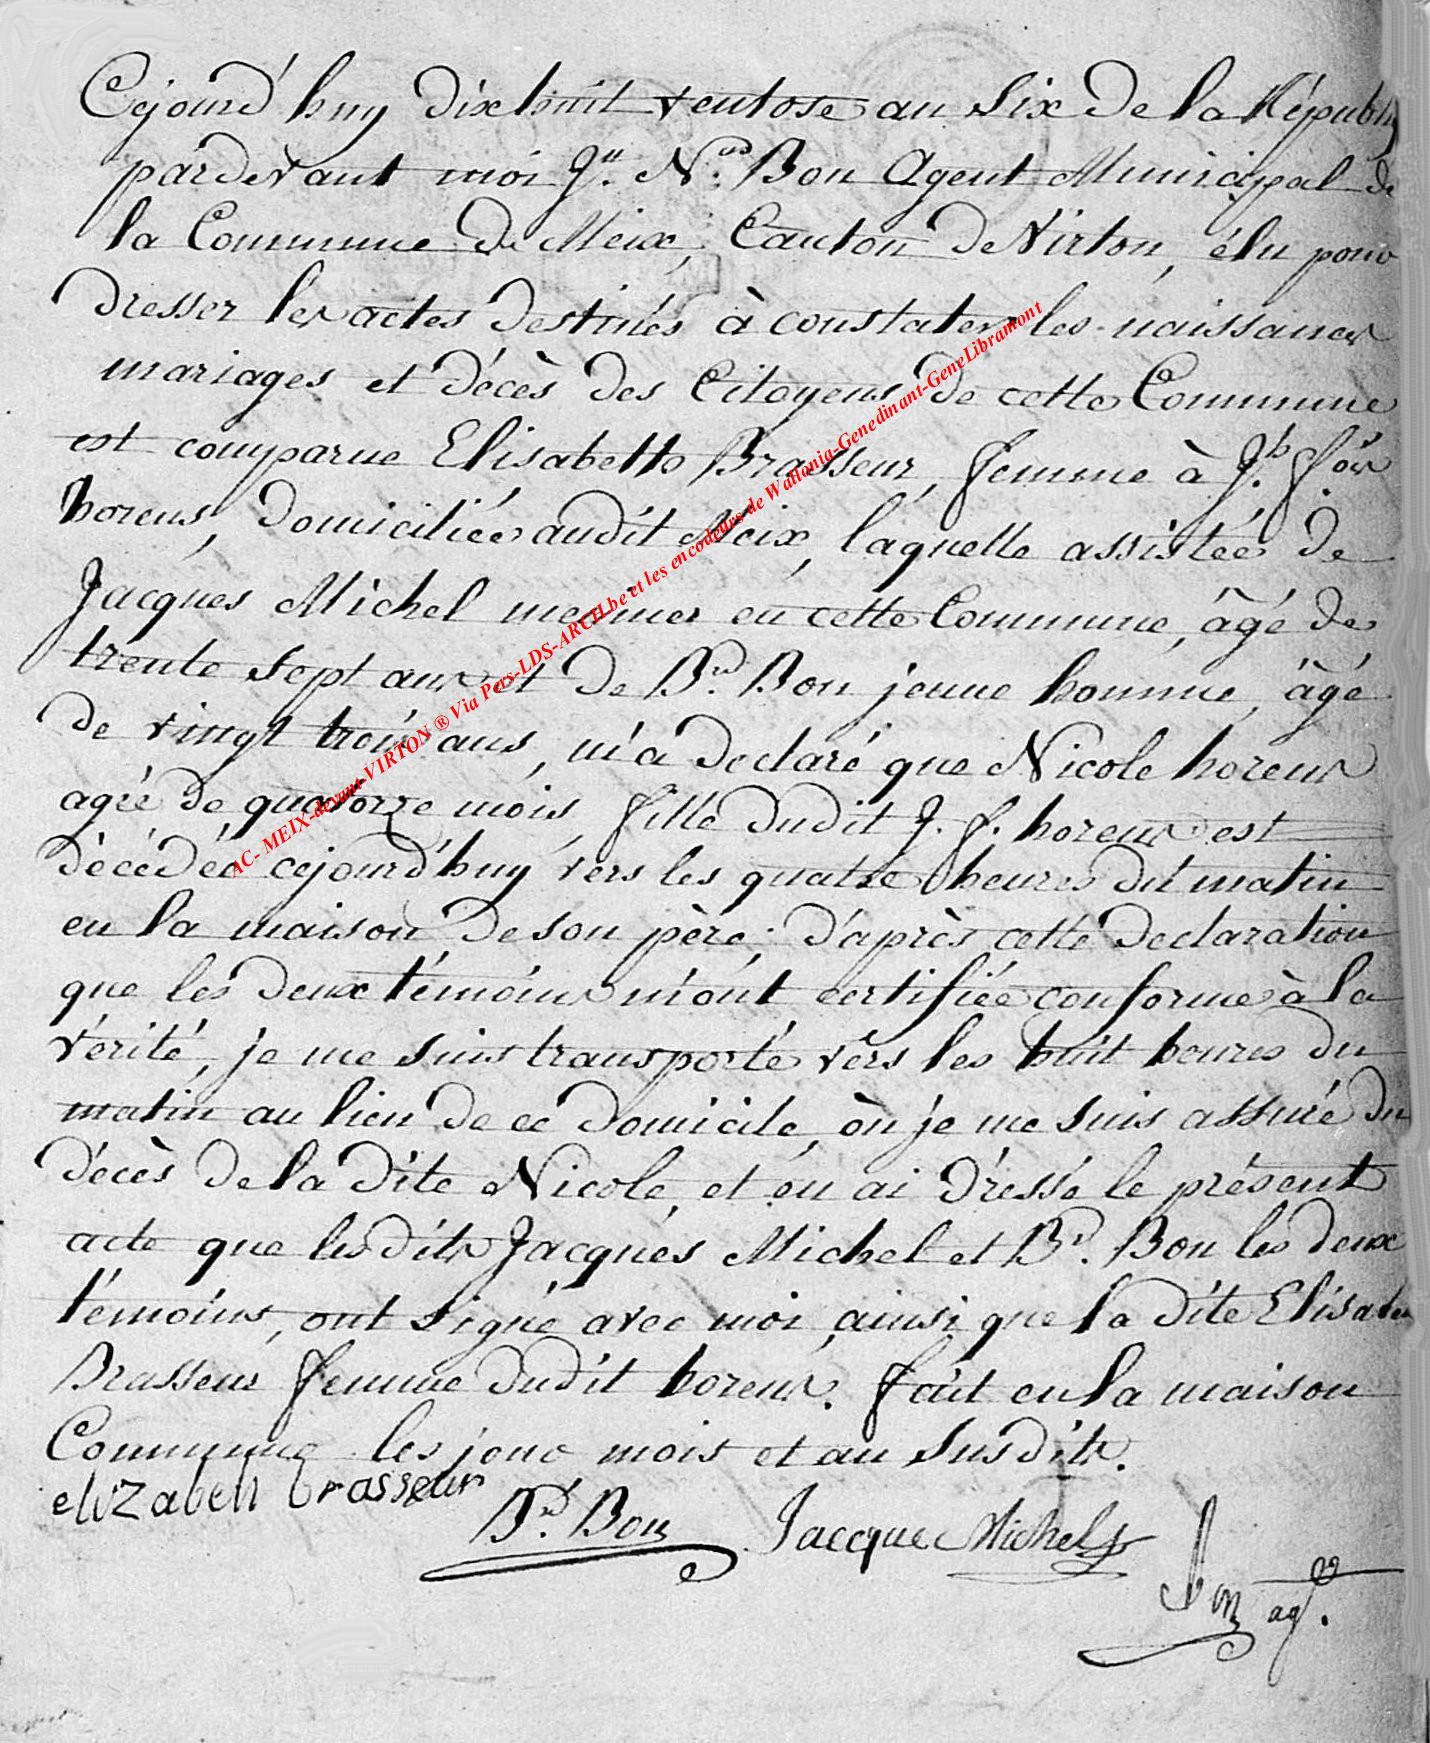 Cejourd'huy dixhuit ventose an Six de la Républiq
pardevant moi Jn. Nas. Bon Agent Municipal de
la Commune de Meix, Canton de Virton, élu pour
dresser les actes destinés à constater les naissances
mariages et décès des Citoyens de cette Commune
est comparue Elisabette Brasseur, femme à Jh. f.ois
horens, domiciliée audit Meix, laquelle assistée de
Jacques Michel meûnier en cette Commune, âgé de
trente sept ans et de Bd. Bon jeune homme, âgé
de vingt trois ans, m'a declaré que Nicole horens
agée de quatorze mois, fille dudit J. f. horens est
décédée cejourd'huy vers les quatre heures du matin
en la maison de son père; d'après cette declaration
que les deux témoins m'ont certifiée conforme à la
vérité, je me suis transporté vers les huit heures du
matin au lieu de ce domicile, où je me suis assuré du
décès de la dite Nicole, et en ai dressé le présent
acte que lesdits Jacques Michel et Bd. Bon les deux
témoins, ont signé avec moi ainsi que la dite Elisabet
Brasseur femme dudit horens. fait en la maison
Commune les jour mois et an susdits.
elizabeth brasseur
Bd. Bon Jacque Michel
Bon agt.
AC- MEIX-devant-VIRTON ® Via Pers-LDS-ARCH.be et les encodeurs de Wallonia-Genedinant-GeneLibramont